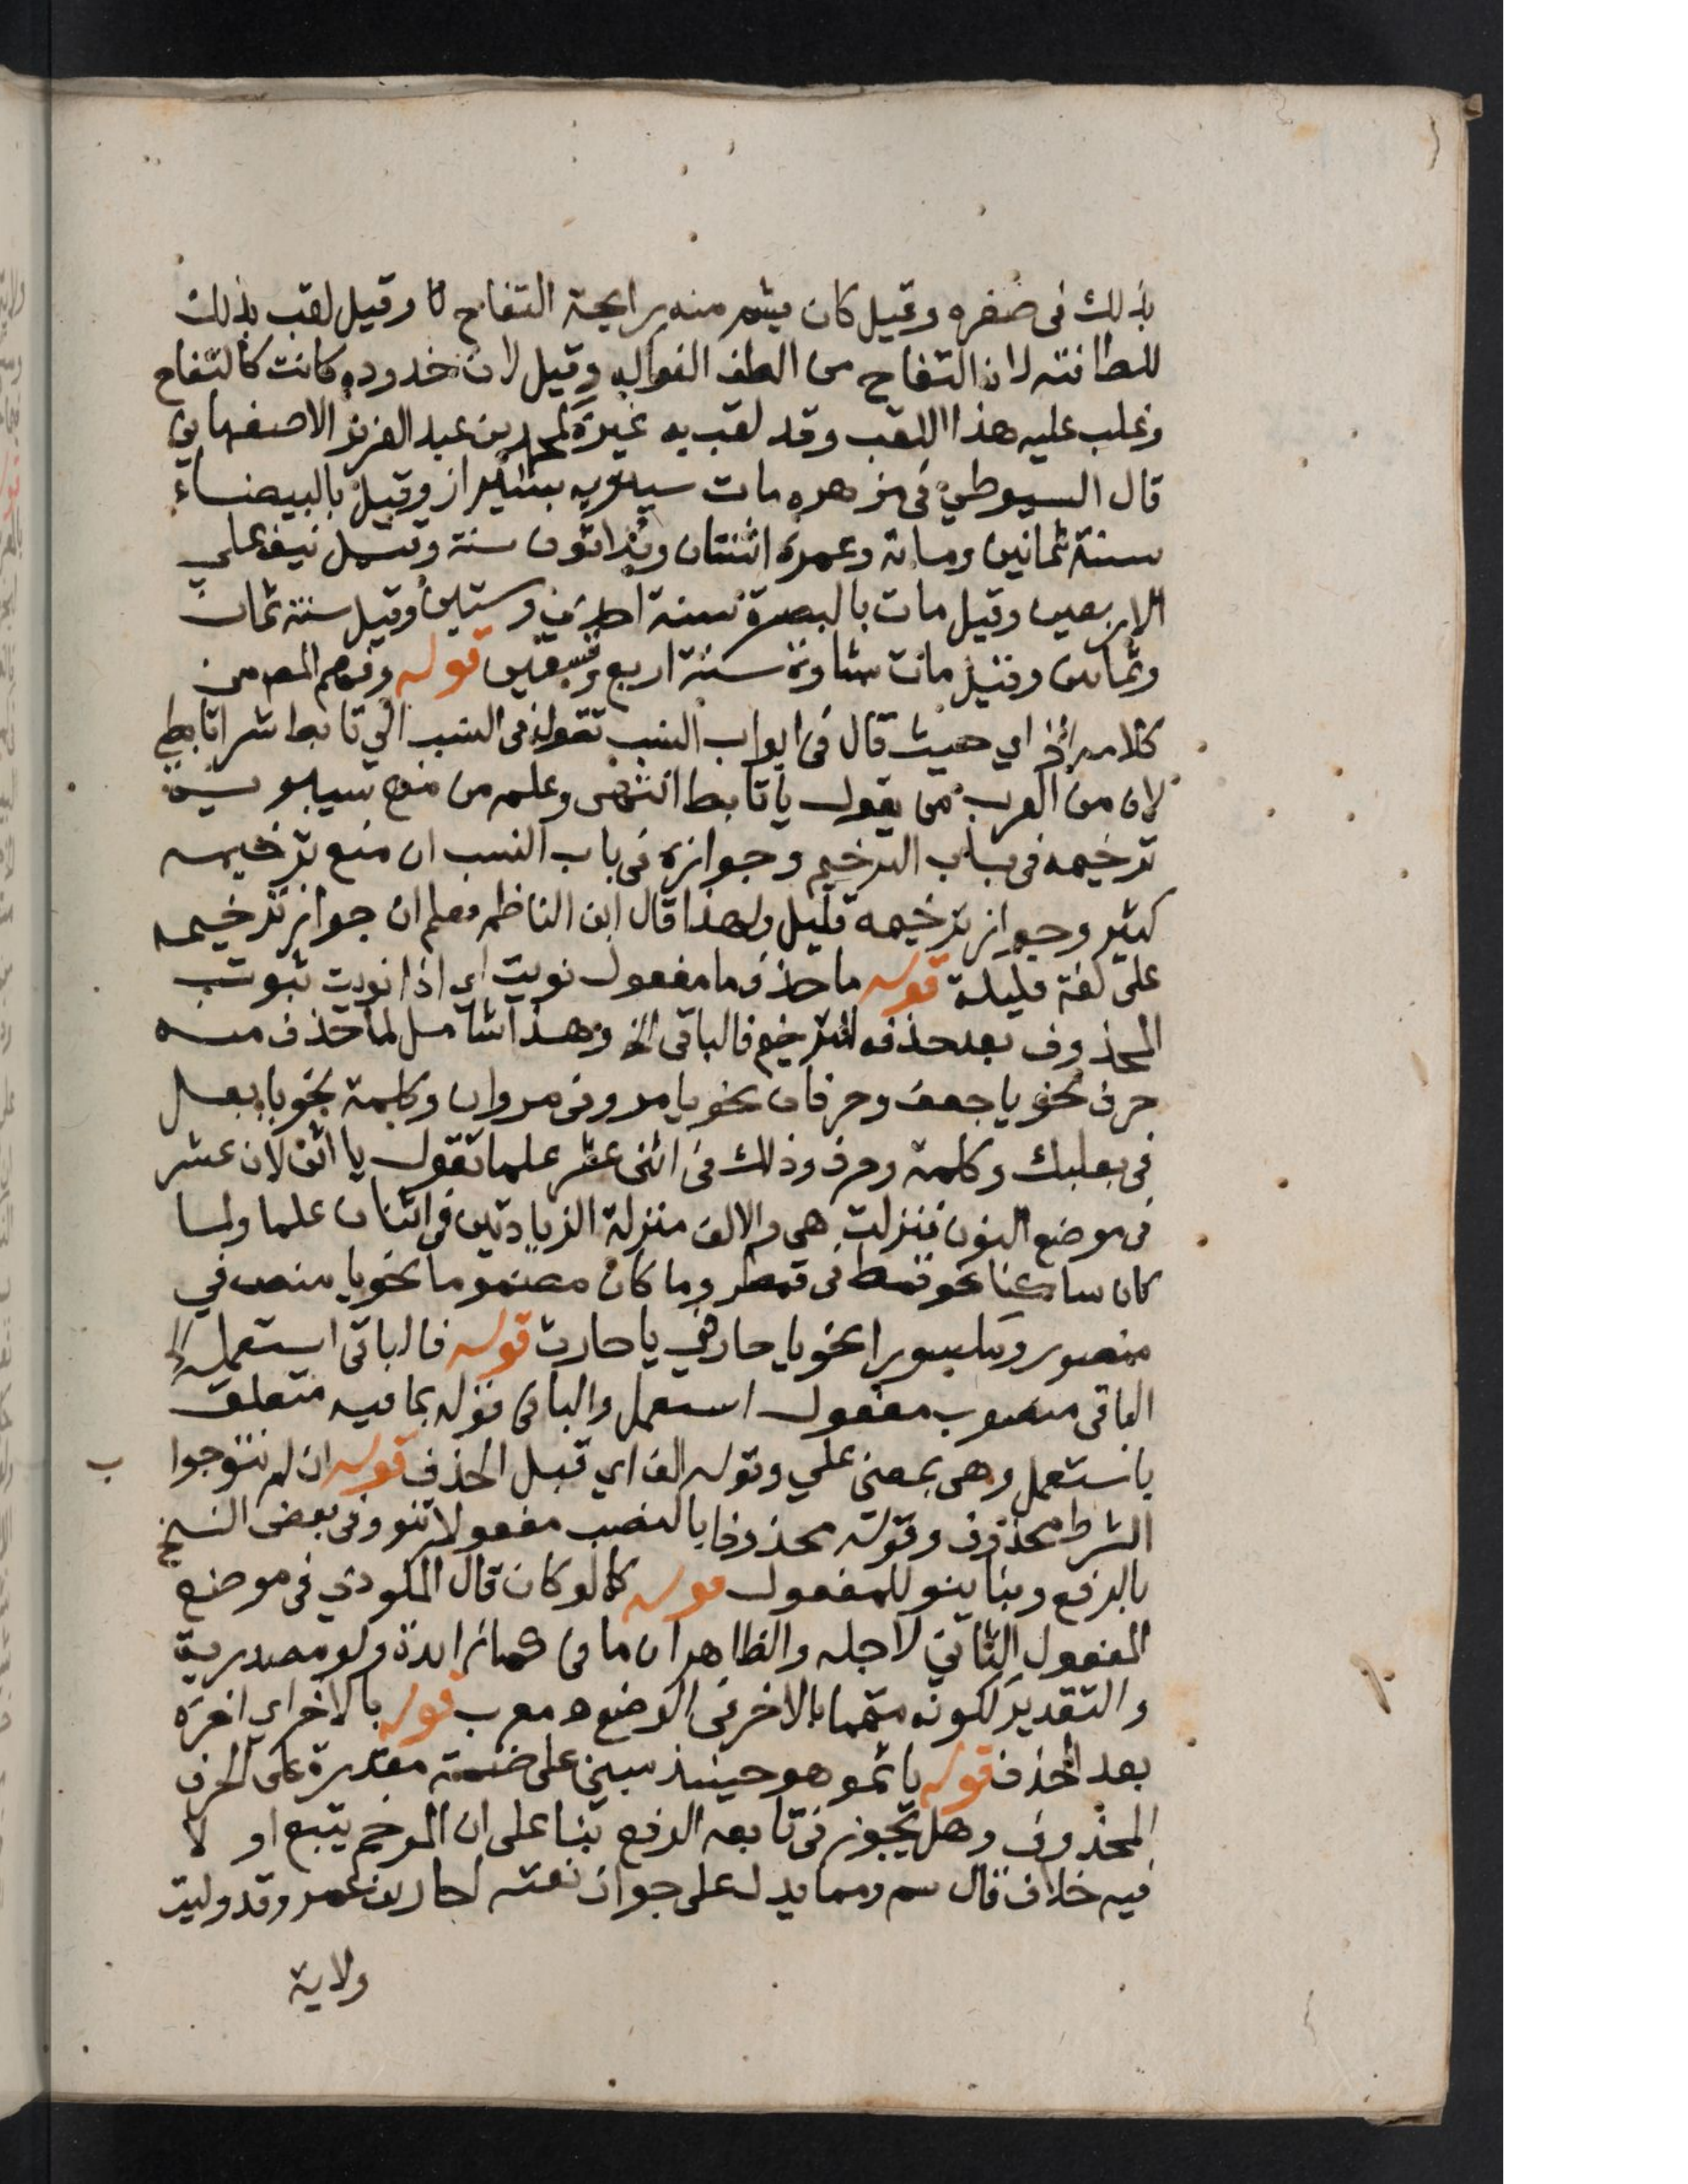 بذلك فى صغره وقيل كان يشم منه رايحة التفاح وقيل لقب بذلك
للطافته لان التفاح من الطف الفواكه وقيل لان خدوده كانت كالتفاح
وغلب عليه هذا اللقب وقد لقب به غيره كمحمد بن عبد العزيز الاصفهاني
قال السيوطي فى مزهره مات سيبويه بشيراز وقيل بالبيضاء
سنة ثمانين وماتة وعمره اثنتان وثلاثون سنة وقيل نيف على
الاربعين وقيل مات بالبصرة سنة احدي وستين وقيل سنة ثمان
وثمانين وقيل مات بساوة سنة اربع وتسعين قوله وفهم المصم من
كلامه الخ اي حيث قال فى ابواب النسب تقول فى النسب الي تابط شرا تابطي
لان من العرب من يقول يا تابط انتهى وعلم من منع سيبويه
ترخيمه فى باب الترخيم وجوازه فى باب النسب ان منع ترخيمه
كثير وجواز ترخيمه قليل ولهذا قال ابن الناظم فعلم ان جواز ترخيمه
على لغة قليلة قوله ما حذف ما مفعول نويت اي اذا نويت ثبوت
المحذوف بعد حذفه للترخيم فالباقى الخ وهذا شامل لما حذف منه
حرف نحو يا جعف وحرفان نحو يا مرو فى مروان وكلمة نحو يا بعل
فى بعلبك وكلمة وحرف وذلك فى اثنى عشر علما تقول يا اثن لان عشر
فى موضع النون فنزلت هى والالف منزلة الزيادتين فى اثنان علما ولما
كان ساكنا نحو قمط فى قمطر وما كان مضموما نحو يا منص في
منصور ومكسورا نحو يا حار في يا حارث قوله فالباقى استعمل الخ
الباقى منصوب مفعول استعمل والباء فى قوله بما فيه متعلق
باستعمل وهى بمعنى علي وقوله الف اي قبل الحذف قوله ان لم تنو جوا
ب
الشرط محذوف وقوله محذوفا بالنصب مفعول لتنو وفى بعض النسخ
بالرفع وبنا ينو للمفعول قوله كما لو كان قال المكودي فى موضع
المفعول الثاني لاجله والظاهر ان ما فى كما زايدة ولو مصدرية
والتقدير لكونه متمما بالاخر فى الوضع ه معرب قوله بالاخر اي اخره
بعد الحذف قوله يا ثمو هو حينيذ مبني على ضمة مقدرة على الحرف
المحذوف وهل يجوز فى تابعه الرفع بنا على ان المرخم يتبع او لا
فيه خلاف قال سم ومما يدل على جواز نعته احار بن عمرو قد وليت
ولاية